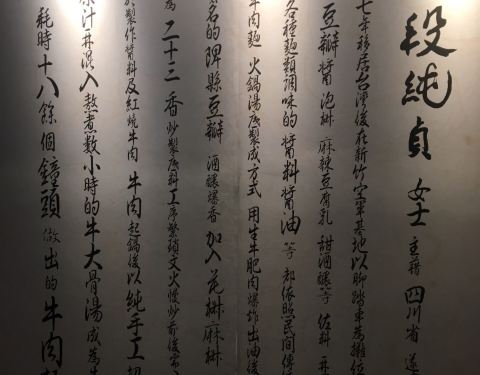 段純貞 女士 主籍 四川省 逆
七年移居台灣後在新竹空軍基地以腳踏車為攤位
豆瓣醬 泡椒 麻辣豆腐乳 甜酒釀等 佐料 再
各種麵類調味的 醬料 醬油 等 都依照民間傳
牛肉麵 火鍋湯底製成方式 用生牛肥肉爆炸出油後
名的 郫縣豆瓣 酒釀爆香 加入 花椒 麻椒
為 二十三 香 炒製底料 工序繁瑣 文火慢炒 前後需
於製作醬料及紅燒牛肉 牛肉 起鍋後以 純手工 切
原汁再混入 熬煮數小時的牛大骨湯 成為牛
耗時 十八餘個鐘頭 做出的 牛肉